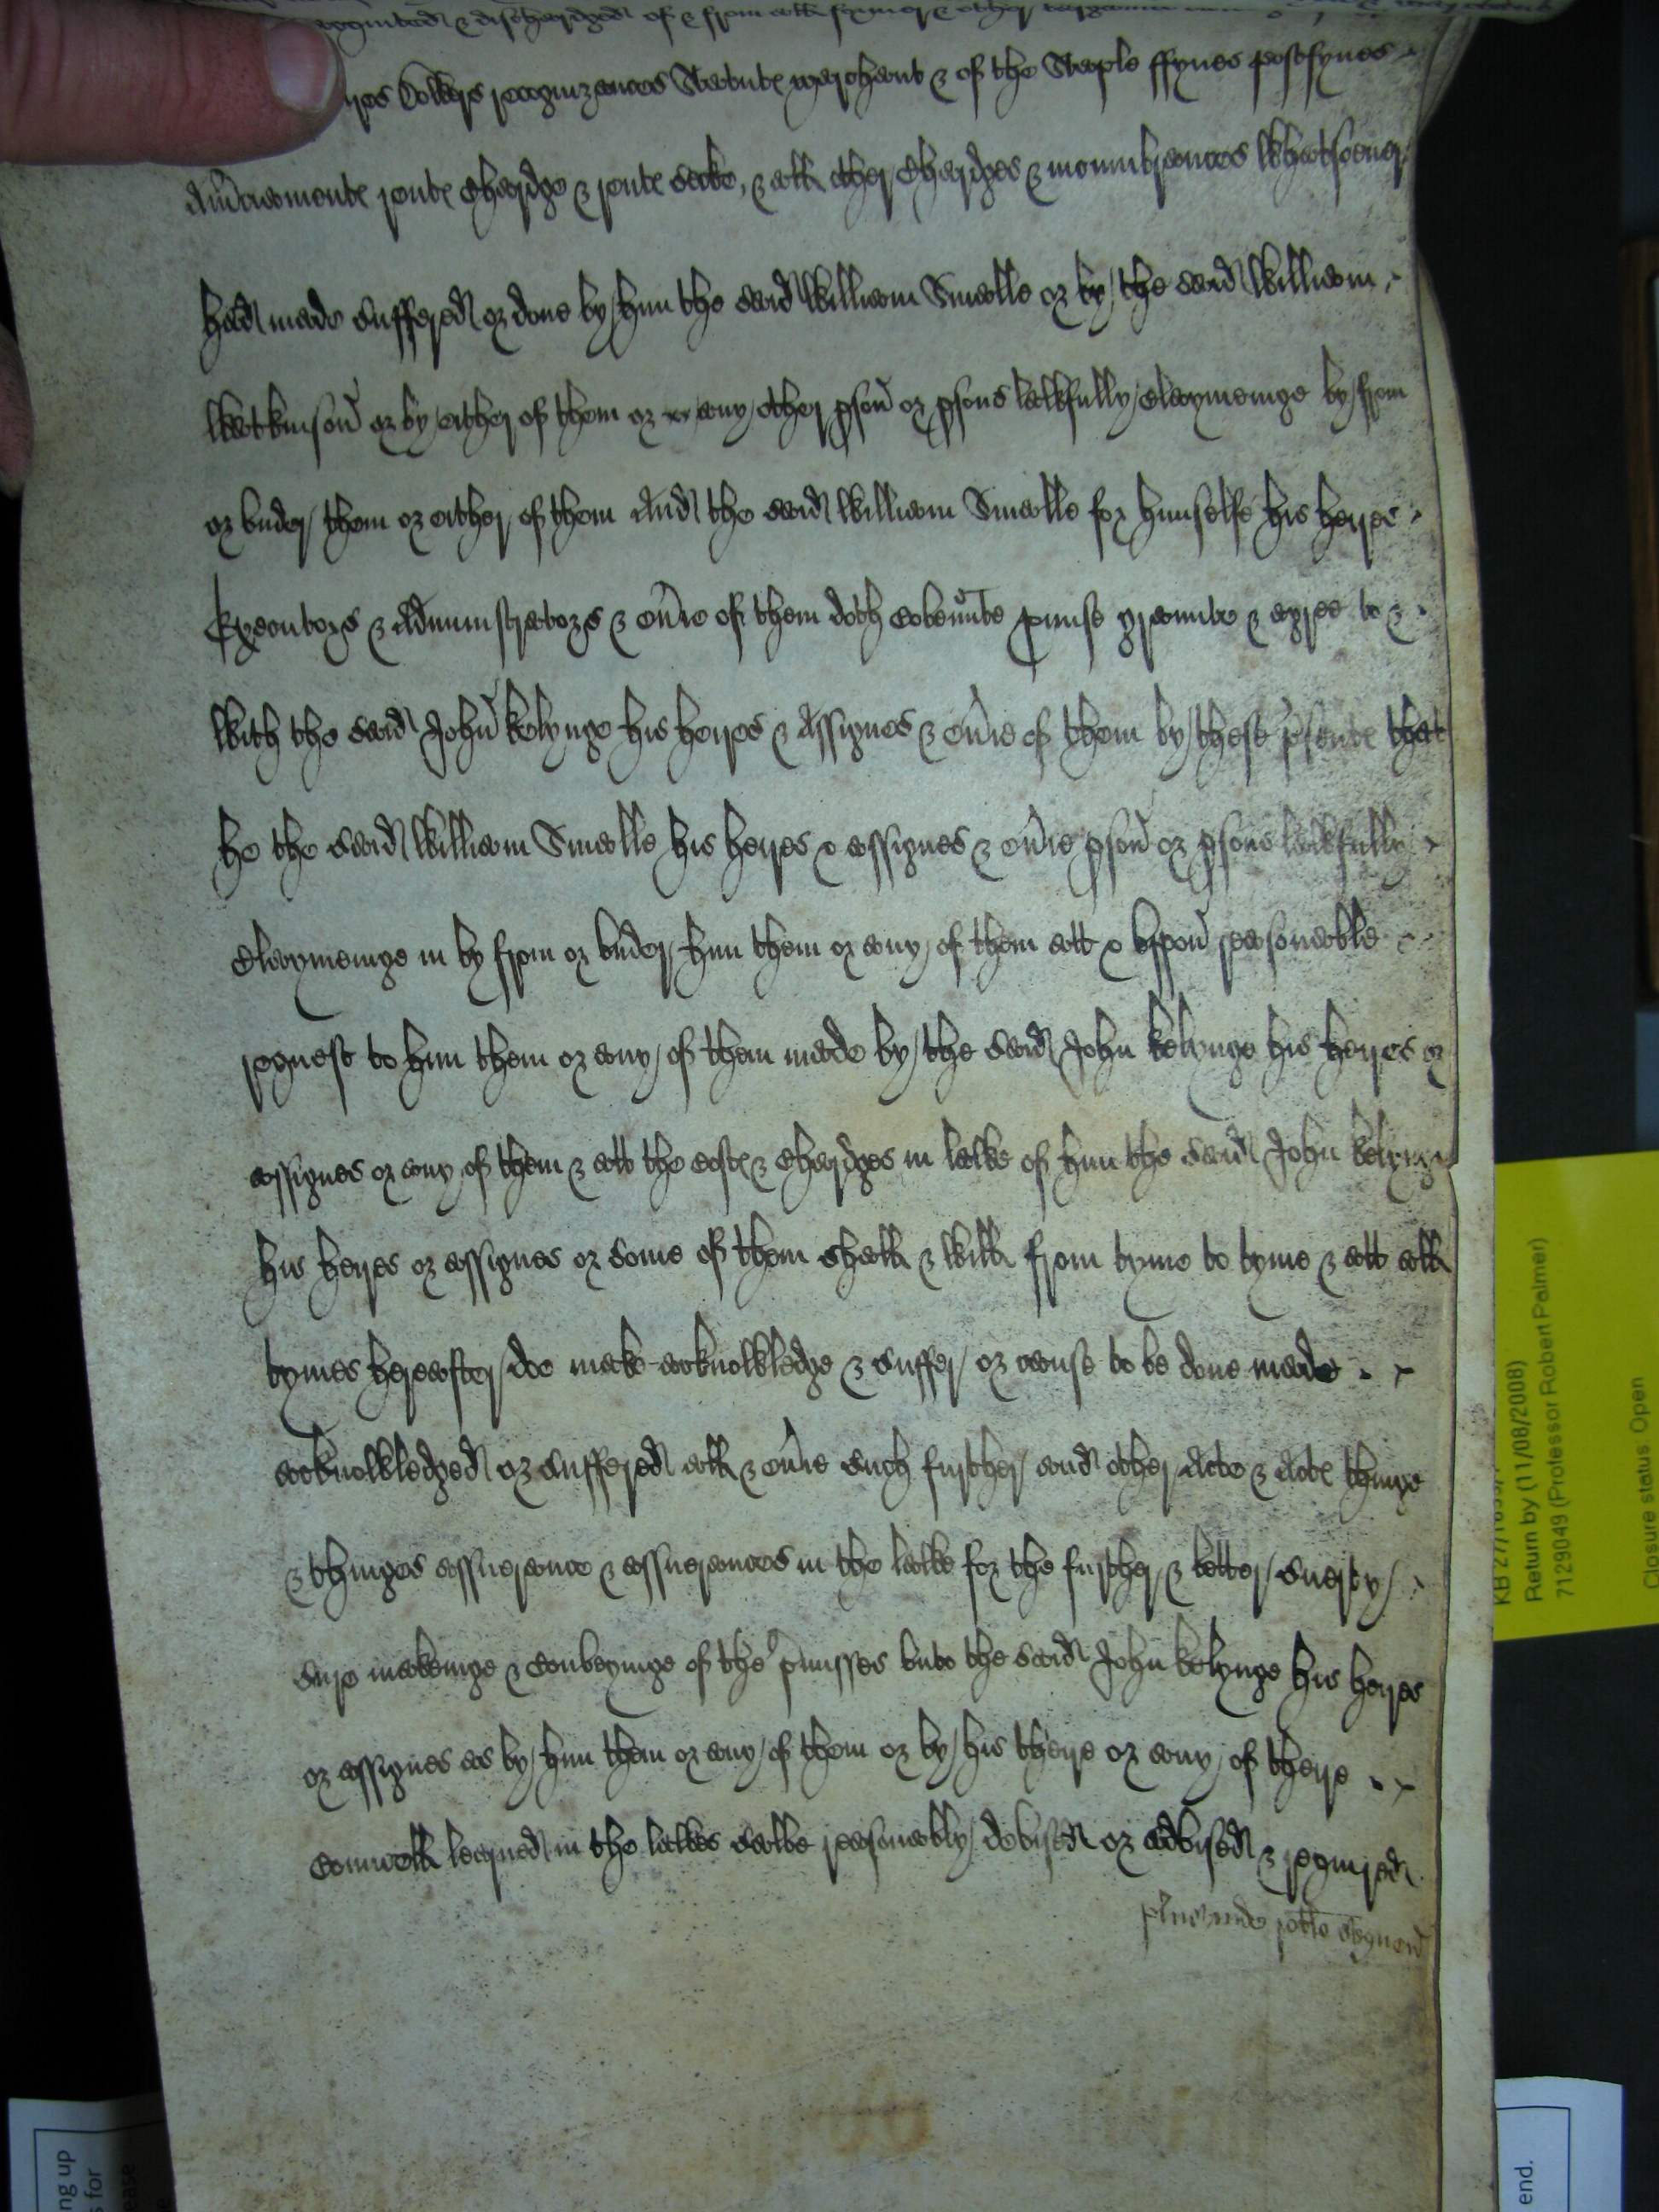 acquited & dischardged of & from all former & other
Dowers recognizances Statute merchant & of the Staple ffynes postfynes
Amerciamente rente Chardge & rente secke, & all other Chardges & incumbrances Whatsoeuer
had made suffered or done by him the said William Smalle or by the said William
Watkinson or by either of them or any other pson or psons lawfully Claymeinge by from
or vnder them or either of them And the said William Smalle for himselfe his heyres
Executors & Administrators & eu'ie of them doth Coven'nte pmise graunte & agree to &
With the said John kelynge his heyres & Assignes & eu'ie of them by these psente that
he the said William Smalle his heyres & assignes & eu'ie pson or psons lawfully
Claymeinge in by from or vnder him them or any of them att & vppon reasonable
request to him them or any of them made by the said John kelynge his heyres or
assignes or any of them & att the coste & Chardges in lawe of him the said John kelynge
his heyres or assignes or some of them shall & Will from tyme to tyme & att all
tymes hereafter doe make acknowledge & suffer or cause to be done made
acknowledged or suffered all & eu'ie such further and other Acte & Acte thinge
& thinges assuerance & assuerances in the lawe for the further & better suerty
sure makeinge & Conveyinge of the pmisses vnto the said John kelynge his heyres
or assignes as by him them or any of them or by his theire or any of theire
Counsell learned in the lawes shalbe reasonably devised or advised & required
KB 27/
Return by (11/08/2008)
7129049 (Professor Robert Palmer)
Closure status: Open
ng up
s for
ease
end.